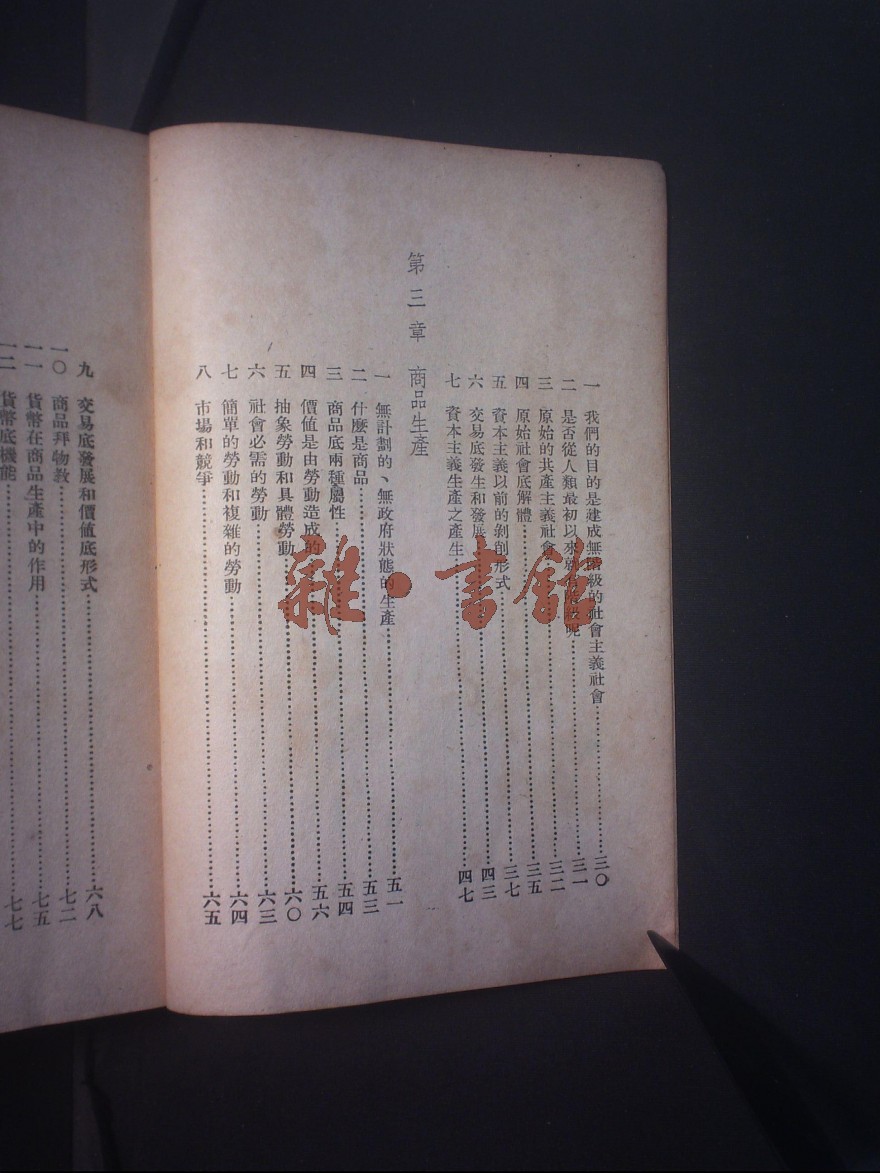 一　我們的目的是建成無階級的社會主義社會……三〇
二　是否從人類最初以來就有階級呢……三一
三　原始的共產主義社會……三二
四　原始社會底解體……三五
五　資本主義以前的剝削形式……三七
六　交易底發生和發展……四三
七　資本主義生產之產生……四七
第三章　商品生產
一　無計劃的、無政府狀態的生產……五一
二　什麼是商品……五三
三　商品底兩種屬性……五四
四　價值是由勞動造成的……五六
五　抽象勞動和具體勞動……六〇
六　社會必需的勞動……六三
七　簡單的勞動和複雜的勞動……六四
八　市場和競爭……六五
九　交易底發展和價值底形式……六八
一〇　商品拜物教……七二
一一　貨幣在商品生產中的作用……七五
一二　貨幣底機能……七七
雜·書館